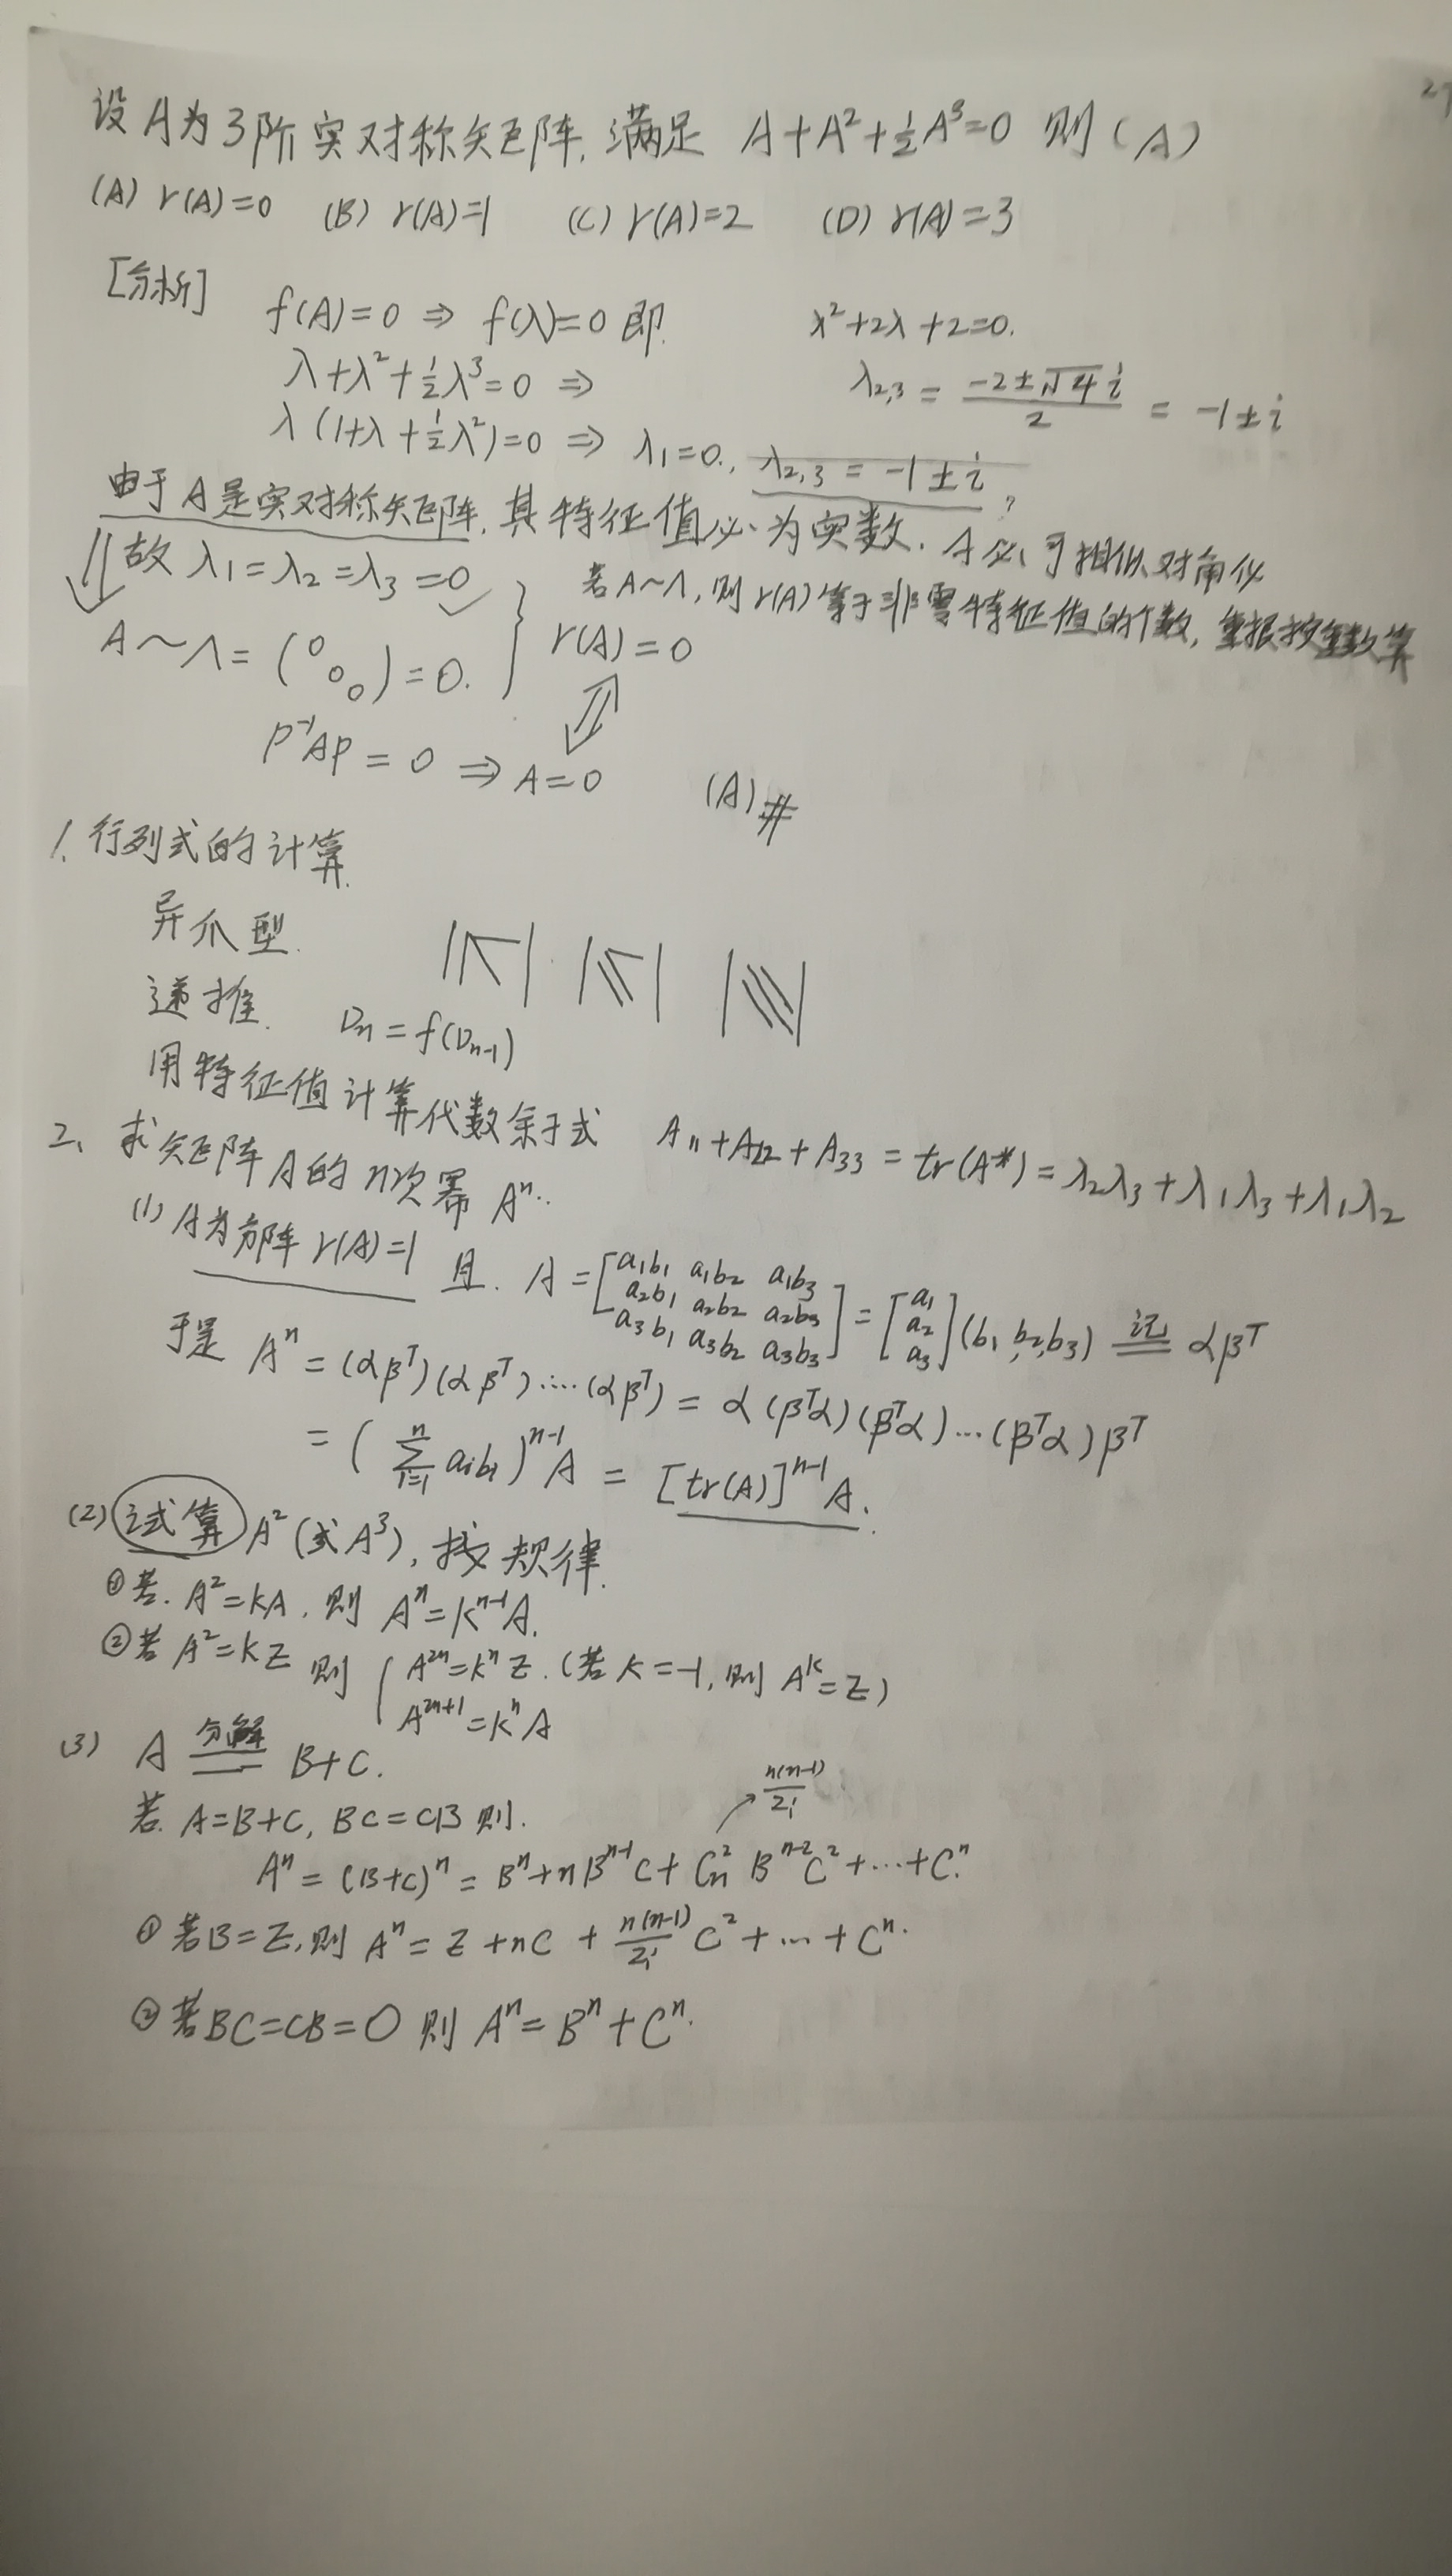 27
设A为3阶实对称矩阵,满足 A+A²+½A³=0 则(A)
(A) r(A)=0 (B) r(A)=1 (C) r(A)=2 (D) r(A)=3
[分析]
f(A)=0 ⇒ f(λ)=0 即 λ²+2λ+2=0.
λ+λ²+½λ³=0 ⇒ λ₂,₃ = (-2±√4 i)/2 = -1±i
λ(1+λ+½λ²)=0 ⇒ λ₁=0., λ₂,₃ = -1±i ?
由于A是实对称矩阵,其特征值必为实数.A必可相似对角化
故 λ₁=λ₂=λ₃=0 若A~Λ,则r(A)等于非零特征值的个数,重根按重数算
A~Λ=(0 0 0)=0. } r(A)=0
P⁻¹AP=0 ⇒ A=0 (A)#
1.行列式的计算.
异爪型.
递推. Dn=f(Dn-1)
用特征值计算代数余子式 A₁₁+A₂₂+A₃₃=tr(A*)=λ₂λ₃+λ₁λ₃+λ₁λ₂
2、求矩阵A的n次幂 Aⁿ..
(1) A为方阵 r(A)=1 且. A=[a₁b₁ a₁b₂ a₁b₃ a₂b₁ a₂b₂ a₂b₃ a₃b₁ a₃b₂ a₃b₃]=[a₁ a₂ a₃](b₁,b₂,b₃) 记 αβᵀ
于是 Aⁿ=(αβᵀ)(αβᵀ)····(αβᵀ)=α(βᵀα)(βᵀα)…(βᵀα)βᵀ
=(∑ⁿᵢ₌₁ aᵢbᵢ)ⁿ⁻¹A=[tr(A)]ⁿ⁻¹A.
(2) 试算 A²(或A³),找规律.
①若.A²=kA,则 Aⁿ=kⁿ⁻¹A.
②若A²=kE 则 { A²ⁿ=kⁿE.(若k=-1,则Aᵏ=E)
A²ⁿ⁺¹=kⁿA
(3) A 分解 B+C.
若.A=B+C, BC=CB 则. n(n-1)/2!
Aⁿ=(B+C)ⁿ=Bⁿ+nBⁿ⁻¹C+Cn²Bⁿ⁻²C²+…+Cⁿ.
①若B=E,则 Aⁿ=E+nC+n(n-1)/2! C²+…+Cⁿ.
②若BC=CB=O 则 Aⁿ=Bⁿ+Cⁿ.